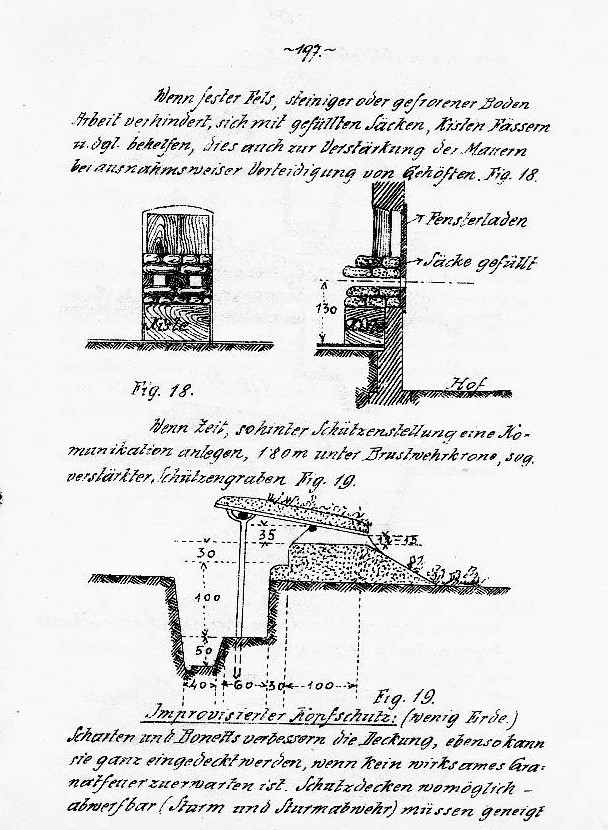 ~197.~
Wenn fester Fels, steiniger oder gefrorener Boden
Arbeit verhindert, sich mit gefüllten Säcken, Kisten Fässern
u. dgl. behelfen, dies auch zur Verstärkung der Mauern
bei ausnahmsweiser Verteidigung von Gehöften. Fig. 18.
Fensterladen
Säcke gefüllt
130
Kiste
Kiste
Hof
Fig. 18.
Wenn Zeit, so hinter Schützenstellung eine Ko-
munikation anlegen, 180m unter Brustwehrkrone, sog.
verstärkter Schützengraben Fig. 19.
35
12-15
30
100
50
40 60 30 100
Fig. 19.
Improvisierter Kopfschutz: (wenig Erde.)
Scharten und Bonetts verbessern die Deckung, ebenso kann
sie ganz eingedeckt werden, wenn kein wirksames Gra-
natfeuer zu erwarten ist. Schutzdecken womöglich -
abwerfbar (Sturm und Sturmabwehr) müssen geneigt